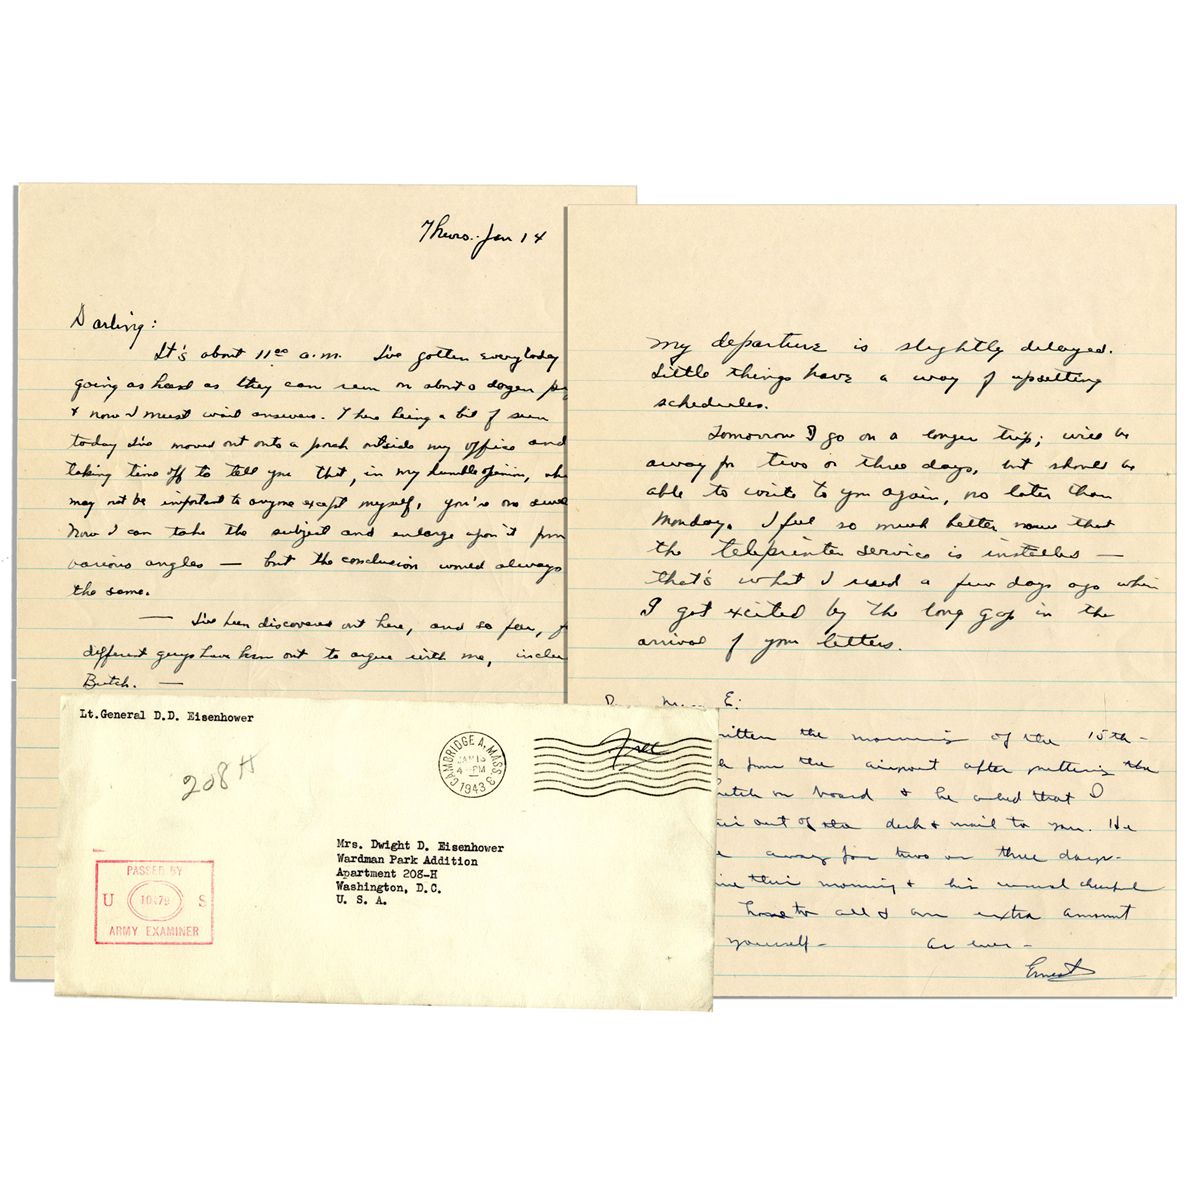 Thurs. Jan 14
Darling:
It's about 11:00 a.m. I've gotten everybody
going as hard as they can run on about a dozen
& now I must wait answers. There being a bit of sun
today I've moved out onto a porch outside my office and
taking time off to tell you that, in my humble opinion,
may not be important to anyone except myself, you're no
Now I can take the subject and enlarge upon it from
various angles — but the conclusion would always
the same.
— I've been discovered out here, and so far,
different guys have been out to argue with me,
Butch. —
my departure is slightly delayed.
Little things have a way of upsetting
schedules.
Tomorrow I go on a longer trip; will be
away for two or three days, but should be
able to write to you again, no later than
Monday. I feel so much better now that
the teleprinter service is installed —
that's what I used a few days ago when
I got excited by the long gap in the
arrival of your letters.
E:
the morning of the 15th -
from the airport after putting the
on board & he asked that I
out of his desk & mail to you. He
away for two or three days-
this morning & his usual cheerful
to all & an extra amount
yourself - As ever -
Ernest
Lt.General D.D. Eisenhower
208 H
CAMBRIDGE A, MASS.
JAN
4 - PM
1943
Free
Mrs. Dwight D. Eisenhower
Wardman Park Addition
Apartment 208-H
Washington, D.C.
U. S. A.
PASSED BY
U S
ARMY EXAMINER